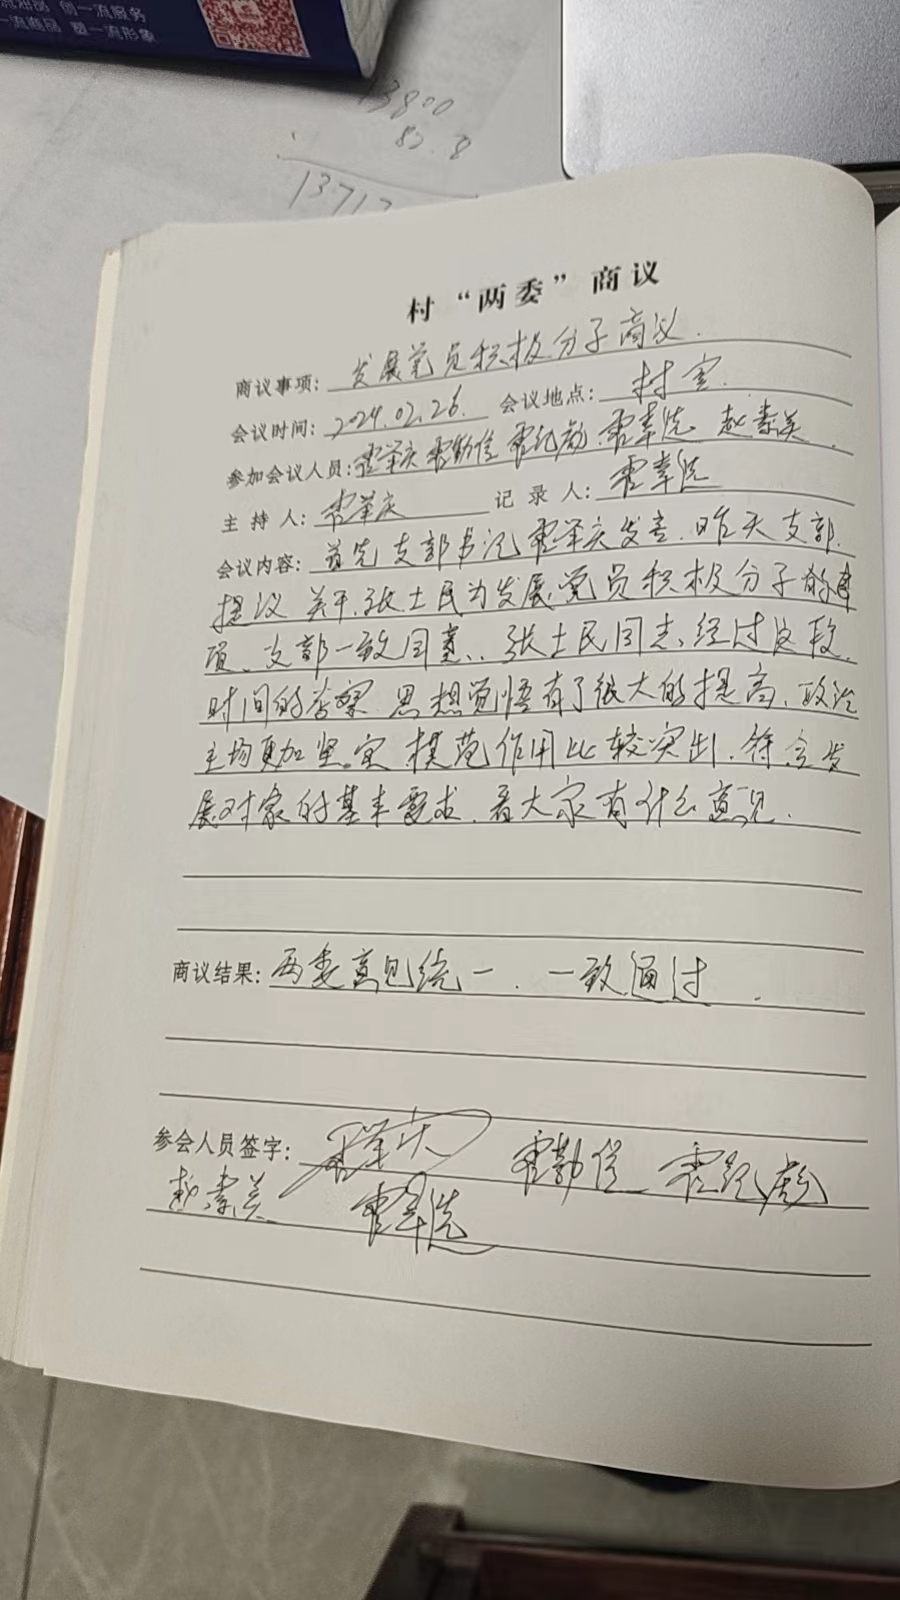 流油品 创一流服务
一流商品 塑一流形象
13800
83.8
1371
村“两委”商议
商议事项: 发展党员积极分子商议.
会议时间: 2024.02.26. 会议地点: 村室.
参加会议人员: 霍举庆 霍勤信 霍纪彪 霍幸选 赵素美.
主持人: 霍举庆 记录人: 霍幸选
会议内容: 首先支部书记霍举庆发言.昨天支部.
提议关于.张士民为发展党员积极分子的事
项、支部一致同意、张士民同志、经过这段.
时间的考察.思想觉悟有了很大的提高、政治
主均更加坚定模范作用比较突出.符合发
展对象的基本要求.看大家有什么意见.
商议结果: 两委意见统一.一致通过.
参会人员签字: 霍举庆 霍勤信 霍纪彪
赵素美 霍幸选